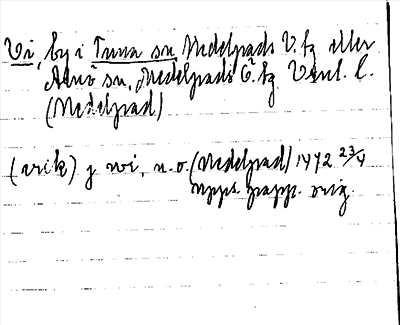 Vi, by i Tuna sn, Medelpads V. tg eller
Alnö sn, Medelpads Ö. tg Vnl. l.
(Medelpad)
(vik) j wi, u.o. (Medelpad) 1472 23/4
Upps. papp. orig.